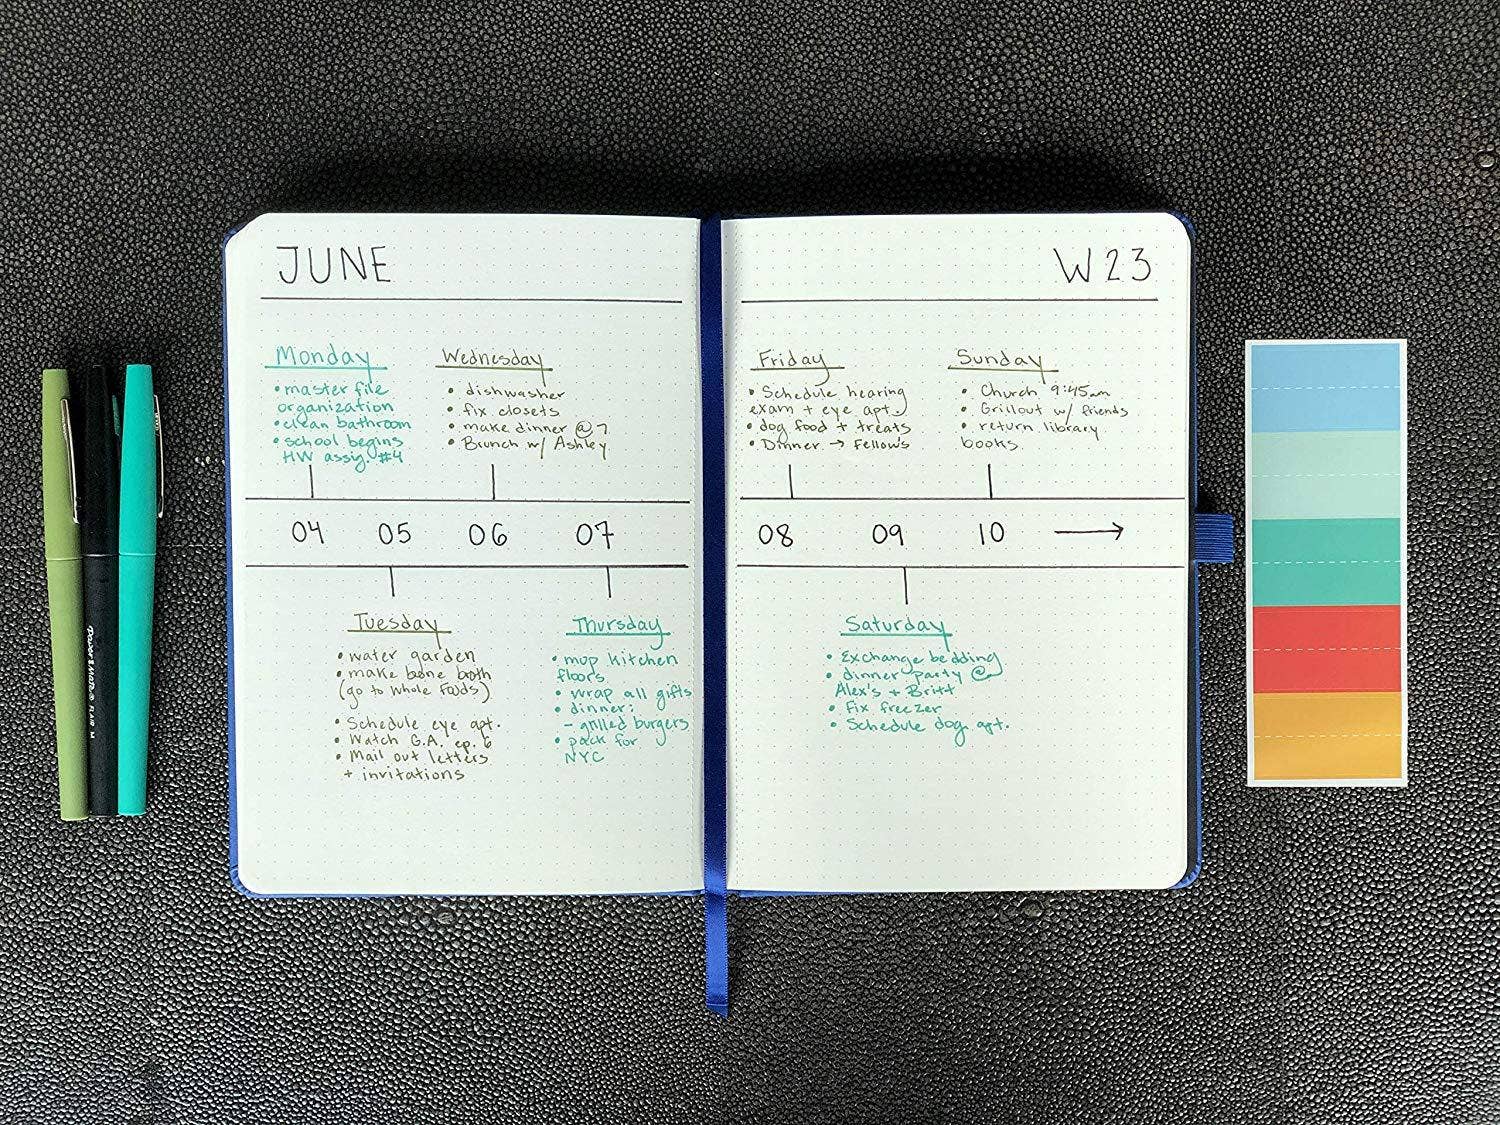 JUNE
W23
Monday
• master file
organization
• clean bathroom
• school begins
HW assig. #4
Wednesday
• dishwasher
• fix closets
• make dinner @ 7
• Brunch w/ Ashley
Friday
• Schedule hearing
exam + eye apt.
• dog food + treats
• Dinner → Fellows
Sunday
• Church 9:45am
• Grillout w/ friends
• return library
books
04 05 06 07
08 09 10 →
Tuesday
• water garden
• make bone broth
(go to Whole Foods)
• Schedule eye apt.
• Watch G.A. ep. 6
• Mail out letters
+ invitations
Thursday
• mop kitchen
floors
• wrap all gifts
• dinner:
- grilled burgers
• pack for
NYC
Saturday
• Exchange bedding
• dinner party @
Alex's + Britt
• Fix freezer
• Schedule dog apt.
Paper Mate FLAIR M